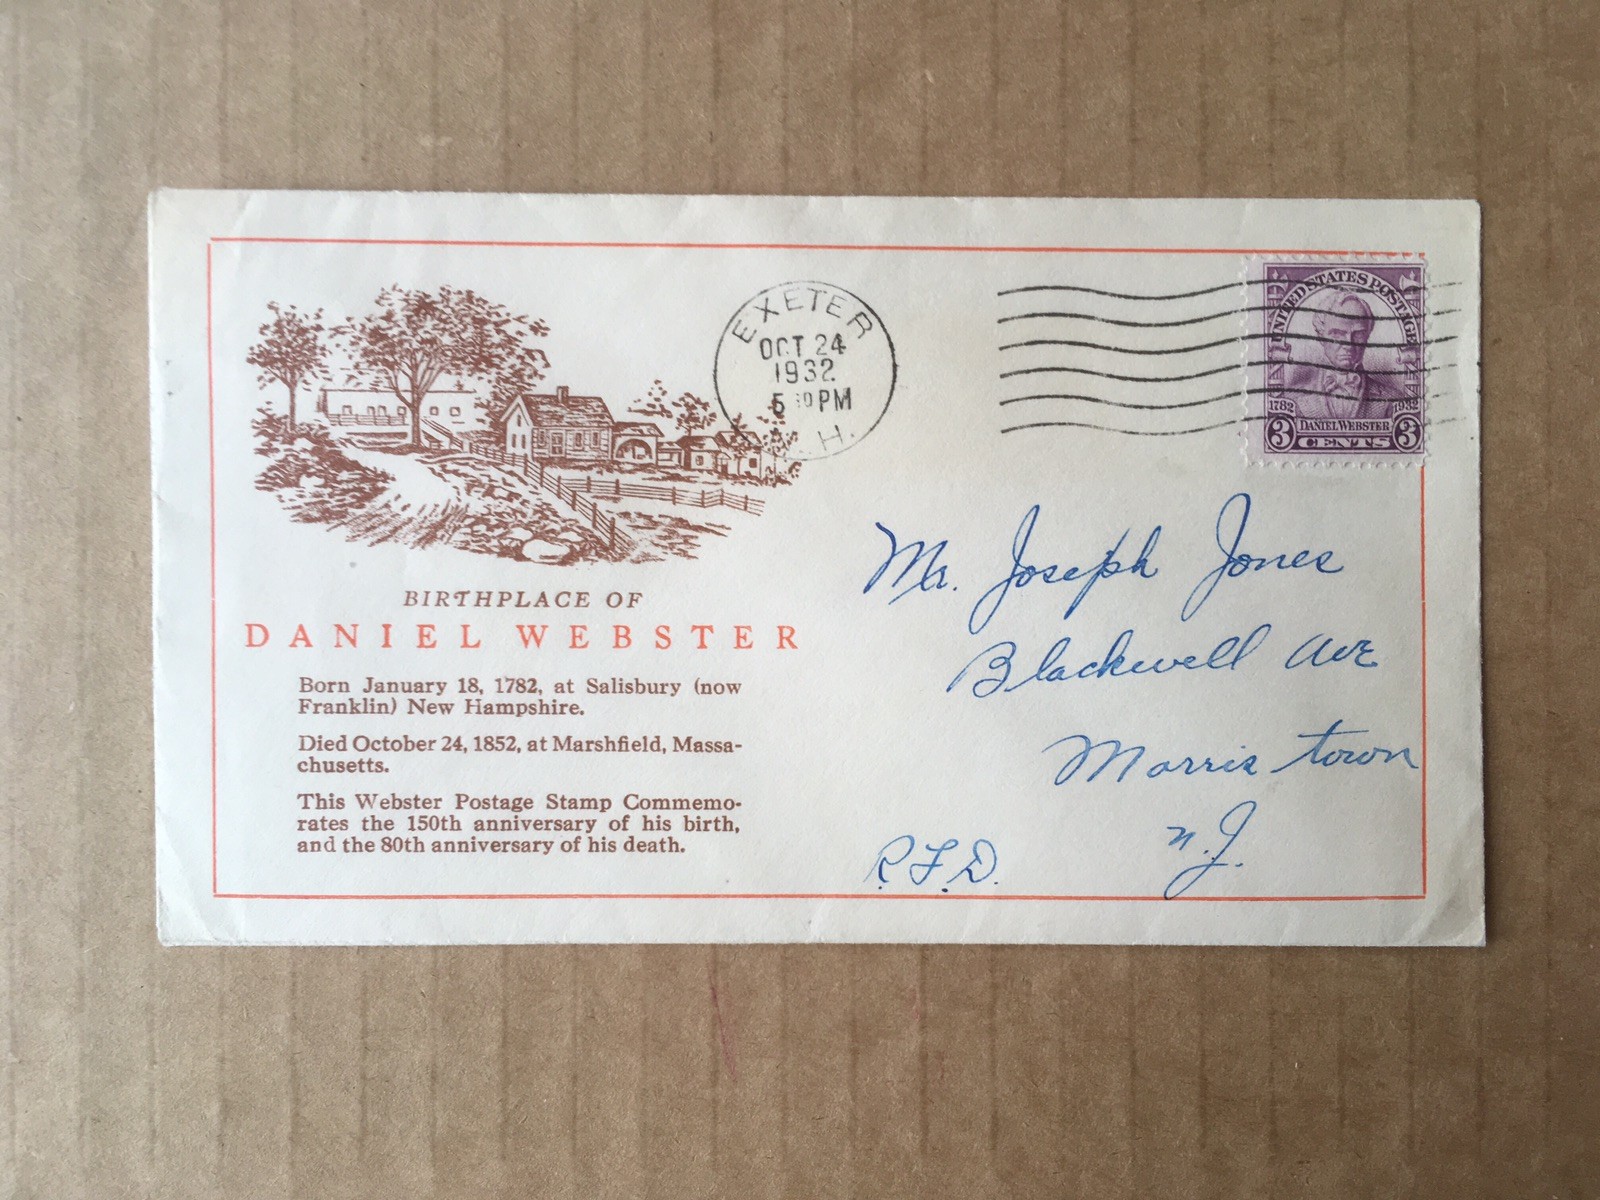 EXETER
OCT 24
1932
5 PM
H.
UNITED STATES POSTAGE
1782 1932
DANIEL WEBSTER
3 CENTS 3
BIRTHPLACE OF
DANIEL WEBSTER
Born January 18, 1782, at Salisbury (now
Franklin) New Hampshire.
Died October 24, 1852, at Marshfield, Massa-
chusetts.
This Webster Postage Stamp Commemo-
rates the 150th anniversary of his birth,
and the 80th anniversary of his death.
Mr. Joseph Jones
Blackwell Ave
Morris town
N.J.
R.F.D.